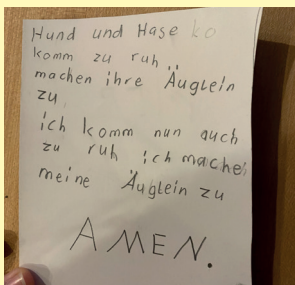 Hund und Hase ko
komm zu ruh
machen ihre Äuglein
zu
ich komm nun auch
zu ruh ich mache
meine Äuglein zu
AMEN.